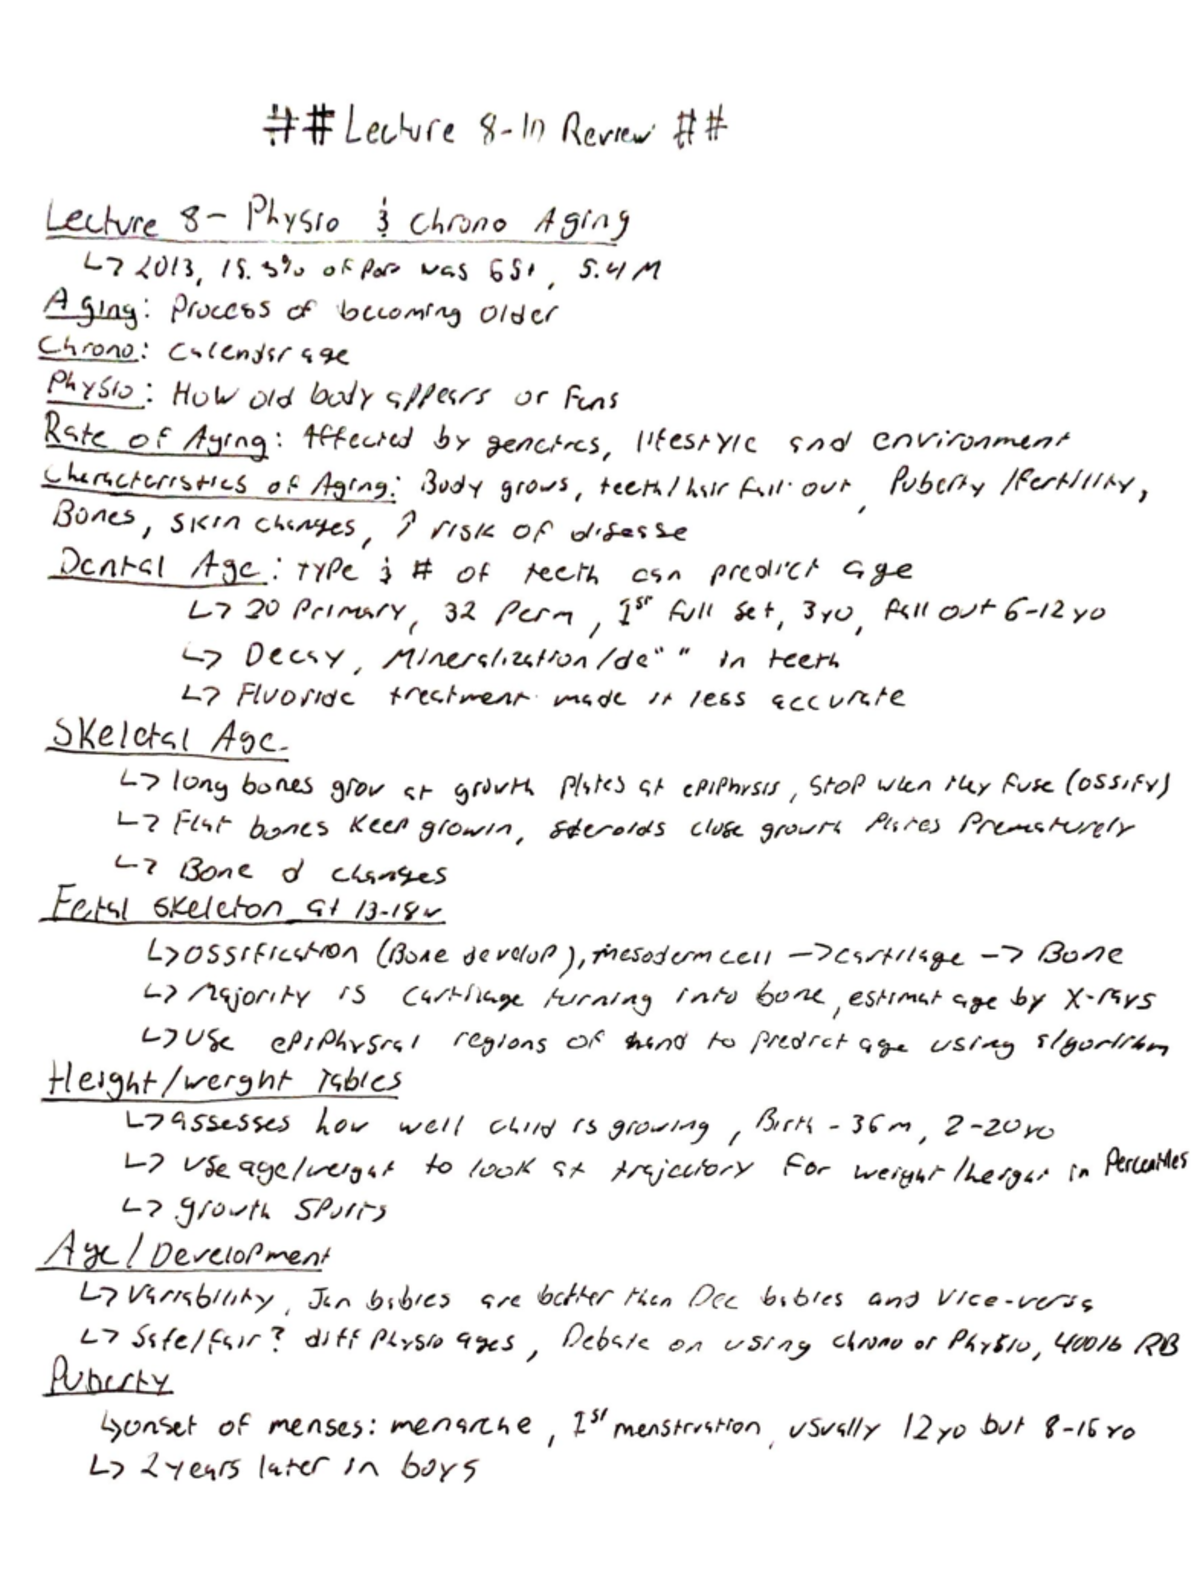 ## Lecture 8-In Review ##
Lecture 8- Physio & Chrono Aging
↳ 2013, 15.3% of Pop was 65+, 5.4M
Aging: Process of becoming older
Chrono: Calendar age
Physio: How old body appears or Funs
Rate of Aging: Affected by genetics, lifestyle and environment
Characteristics of Aging: Body grows, teeth/hair fall out, Puberty/Fertility,
Bones, skin changes, ↑ risk of disease
Dental Age: Type & # of teeth can predict age
↳ 20 Primary, 32 Perm, 1st full set, 3yo, fall out 6-12yo
↳ Decay, Mineralization/de" " in teeth
↳ Fluoride treatment made it less accurate
Skeletal Age
↳ long bones grow at growth plates at epiphysis, stop when they fuse (ossify)
↳ Flat bones keep growin, steroids close growth plates prematurely
↳ Bone d changes
Fetal skeleton at 13-18w
↳ ossification (Bone develop), mesoderm cell → cartilage → Bone
↳ Majority is cartilage turning into bone, estimat age by X-rays
↳ Use epiphysial regions of hand to predict age using algorithm
Height/weight Tables
↳ assesses how well child is growing, Birth - 36m, 2-20yo
↳ Use age/weight to look at trajectory for weight/height in Percentiles
↳ growth spurts
Age/Development
↳ Variability, Jan babies are better then Dec babies and vice-versa
↳ Safe/fair? diff physio ages, Debate on using chrono or Physio, 400lb RB
Puberty
↳ onset of menses: menarche, 1st menstruation, usually 12yo but 8-16yo
↳ 2 years later in boys